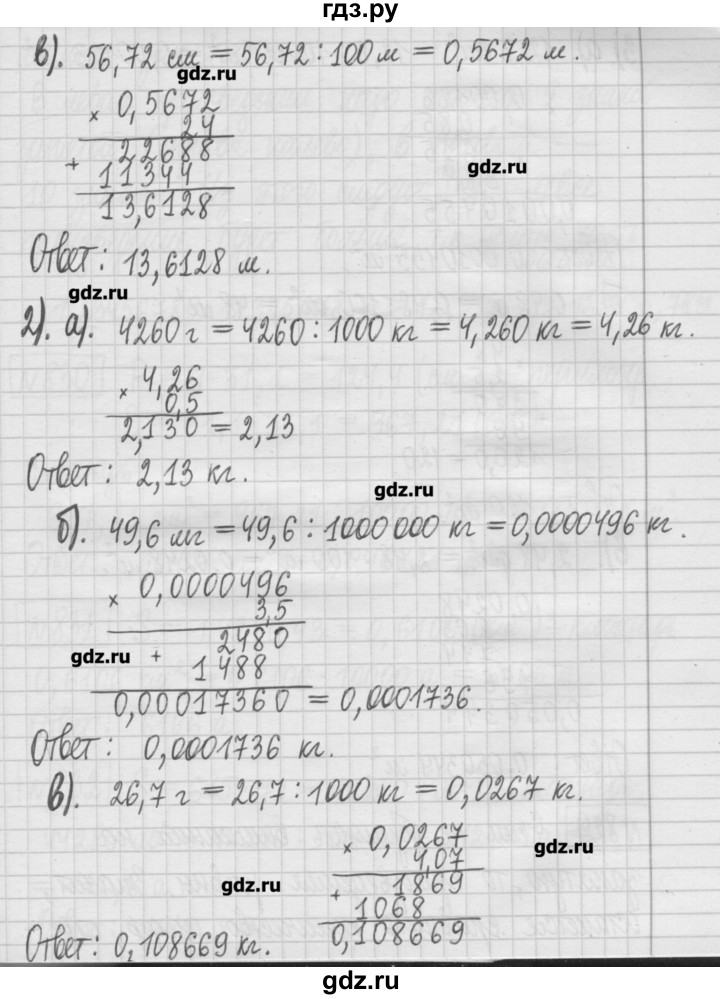 гдз.ру
в). 56,72 см = 56,72 : 100 м = 0,5672 м.
gdz.ru
× 0,5672
24
22688
gdz.ru
+ 11344
13,6128
Ответ: 13,6128 м.
gdz.ru
2). а). 4260 г = 4260 : 1000 кг = 4,260 кг = 4,26 кг.
× 4,26
0,5
2,130 = 2,13
Ответ: 2,13 кг.
gdz.ru
б). 49,6 мг = 49,6 : 1000 000 кг = 0,0000496 кг.
× 0,0000496
3,5
2480
gdz.ru
+ 1488
0,00017360 = 0,0001736.
Ответ: 0,0001736 кг.
в). 26,7 г = 26,7 : 1000 кг = 0,0267 кг.
× 0,0267
gdz.ru
4,07
gdz.ru
1869
+ 1068
0,108669
Ответ: 0,108669 кг.
gdz.ru